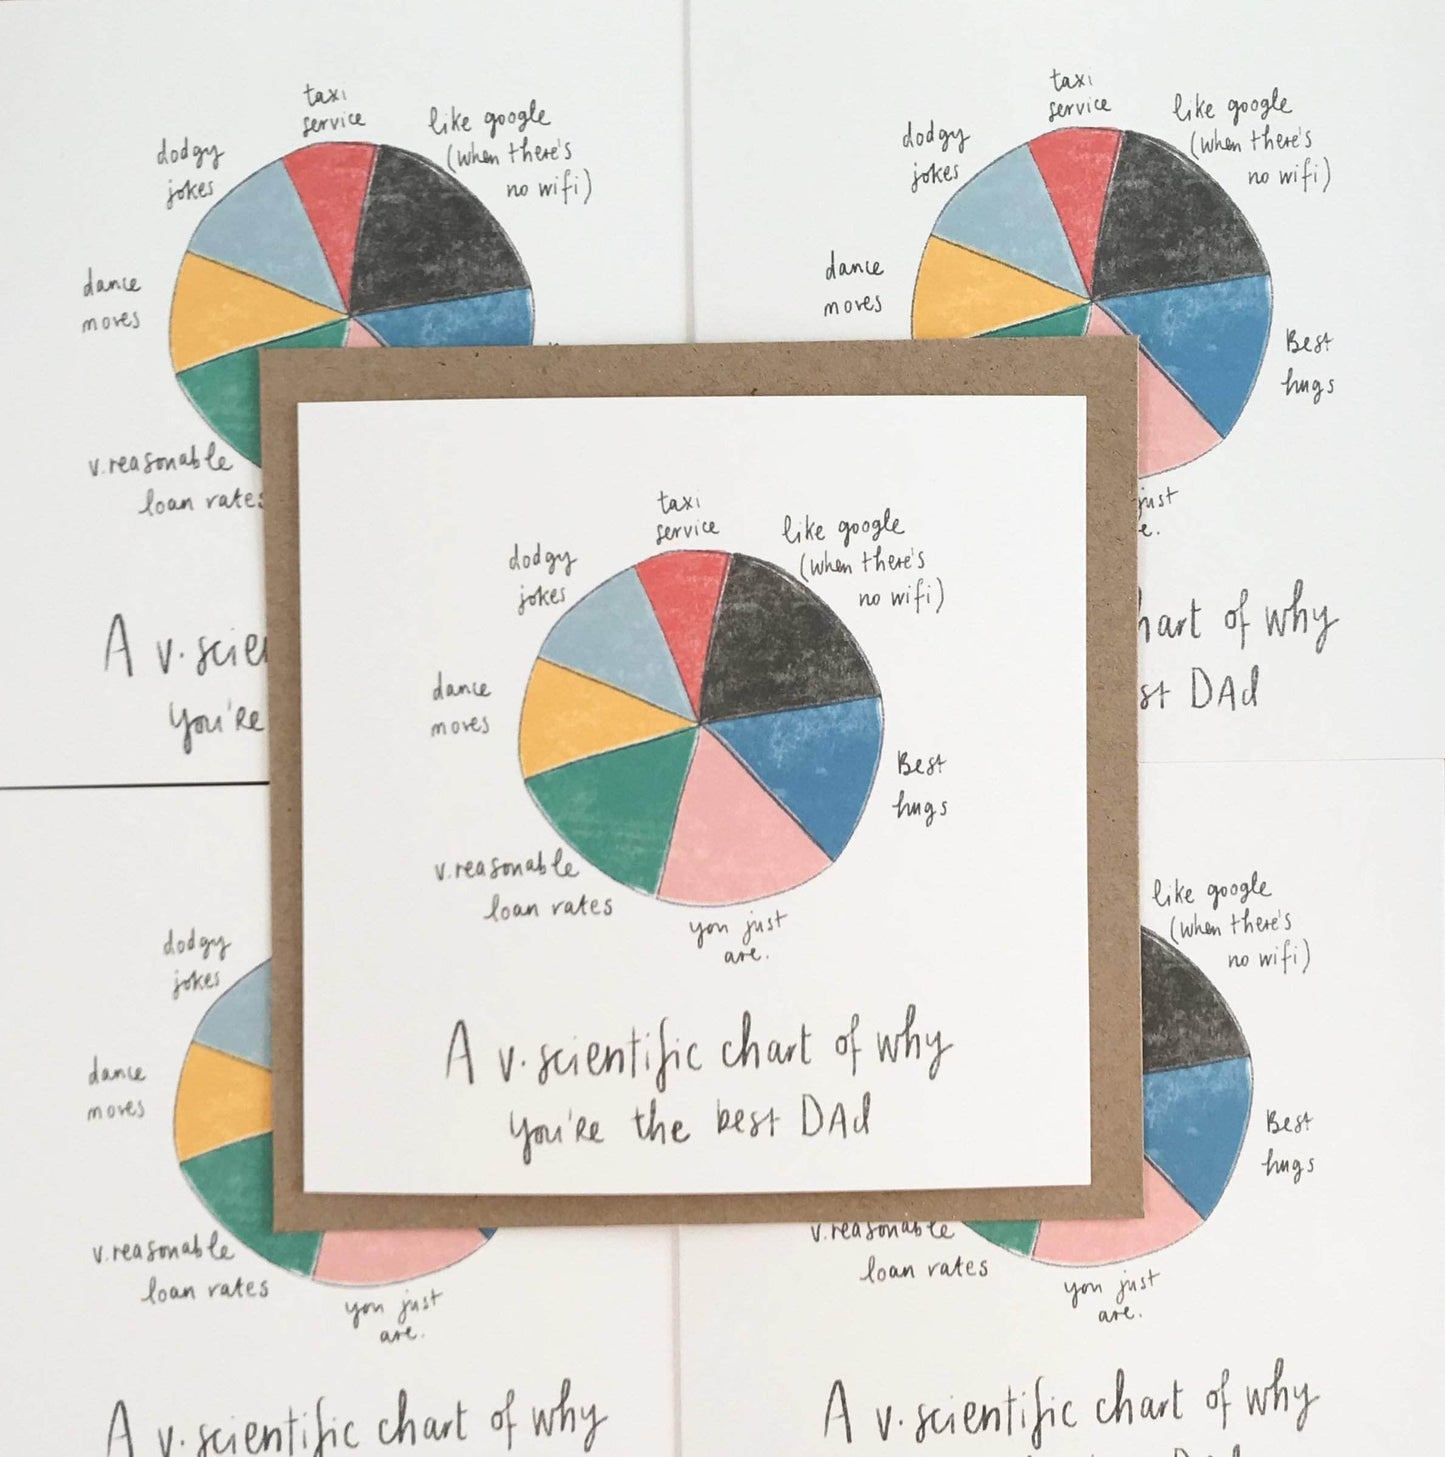 taxi
service
like google
(when there's
no wifi)
dodgy
jokes
dance
moves
v.reasonable
loan rates
A v. scie
you're
taxi
service
like google
(when there's
no wifi)
dodgy
jokes
dance
moves
Best
hugs
just
hart of why
st DAd
taxi
service
like google
(when there's
no wifi)
dodgy
jokes
dance
moves
Best
hugs
v.reasonable
loan rates
you just
are.
A v. scientific chart of why
you're the best DAd
dodgy
jokes
dance
moves
v.reasonable
loan rates
you just
are.
A v. scientific chart of why
like google
(when there's
no wifi)
Best
hugs
v.reasonable
loan rates
you just
are.
A v. scientific chart of why